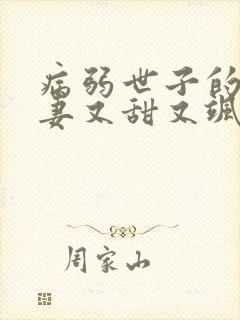 病弱世子的
妻又甜又飒
周家山